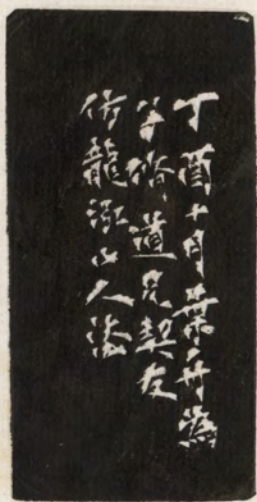 丁酉十月葉舟為
竹階道兄契友
仿龍泓山人法